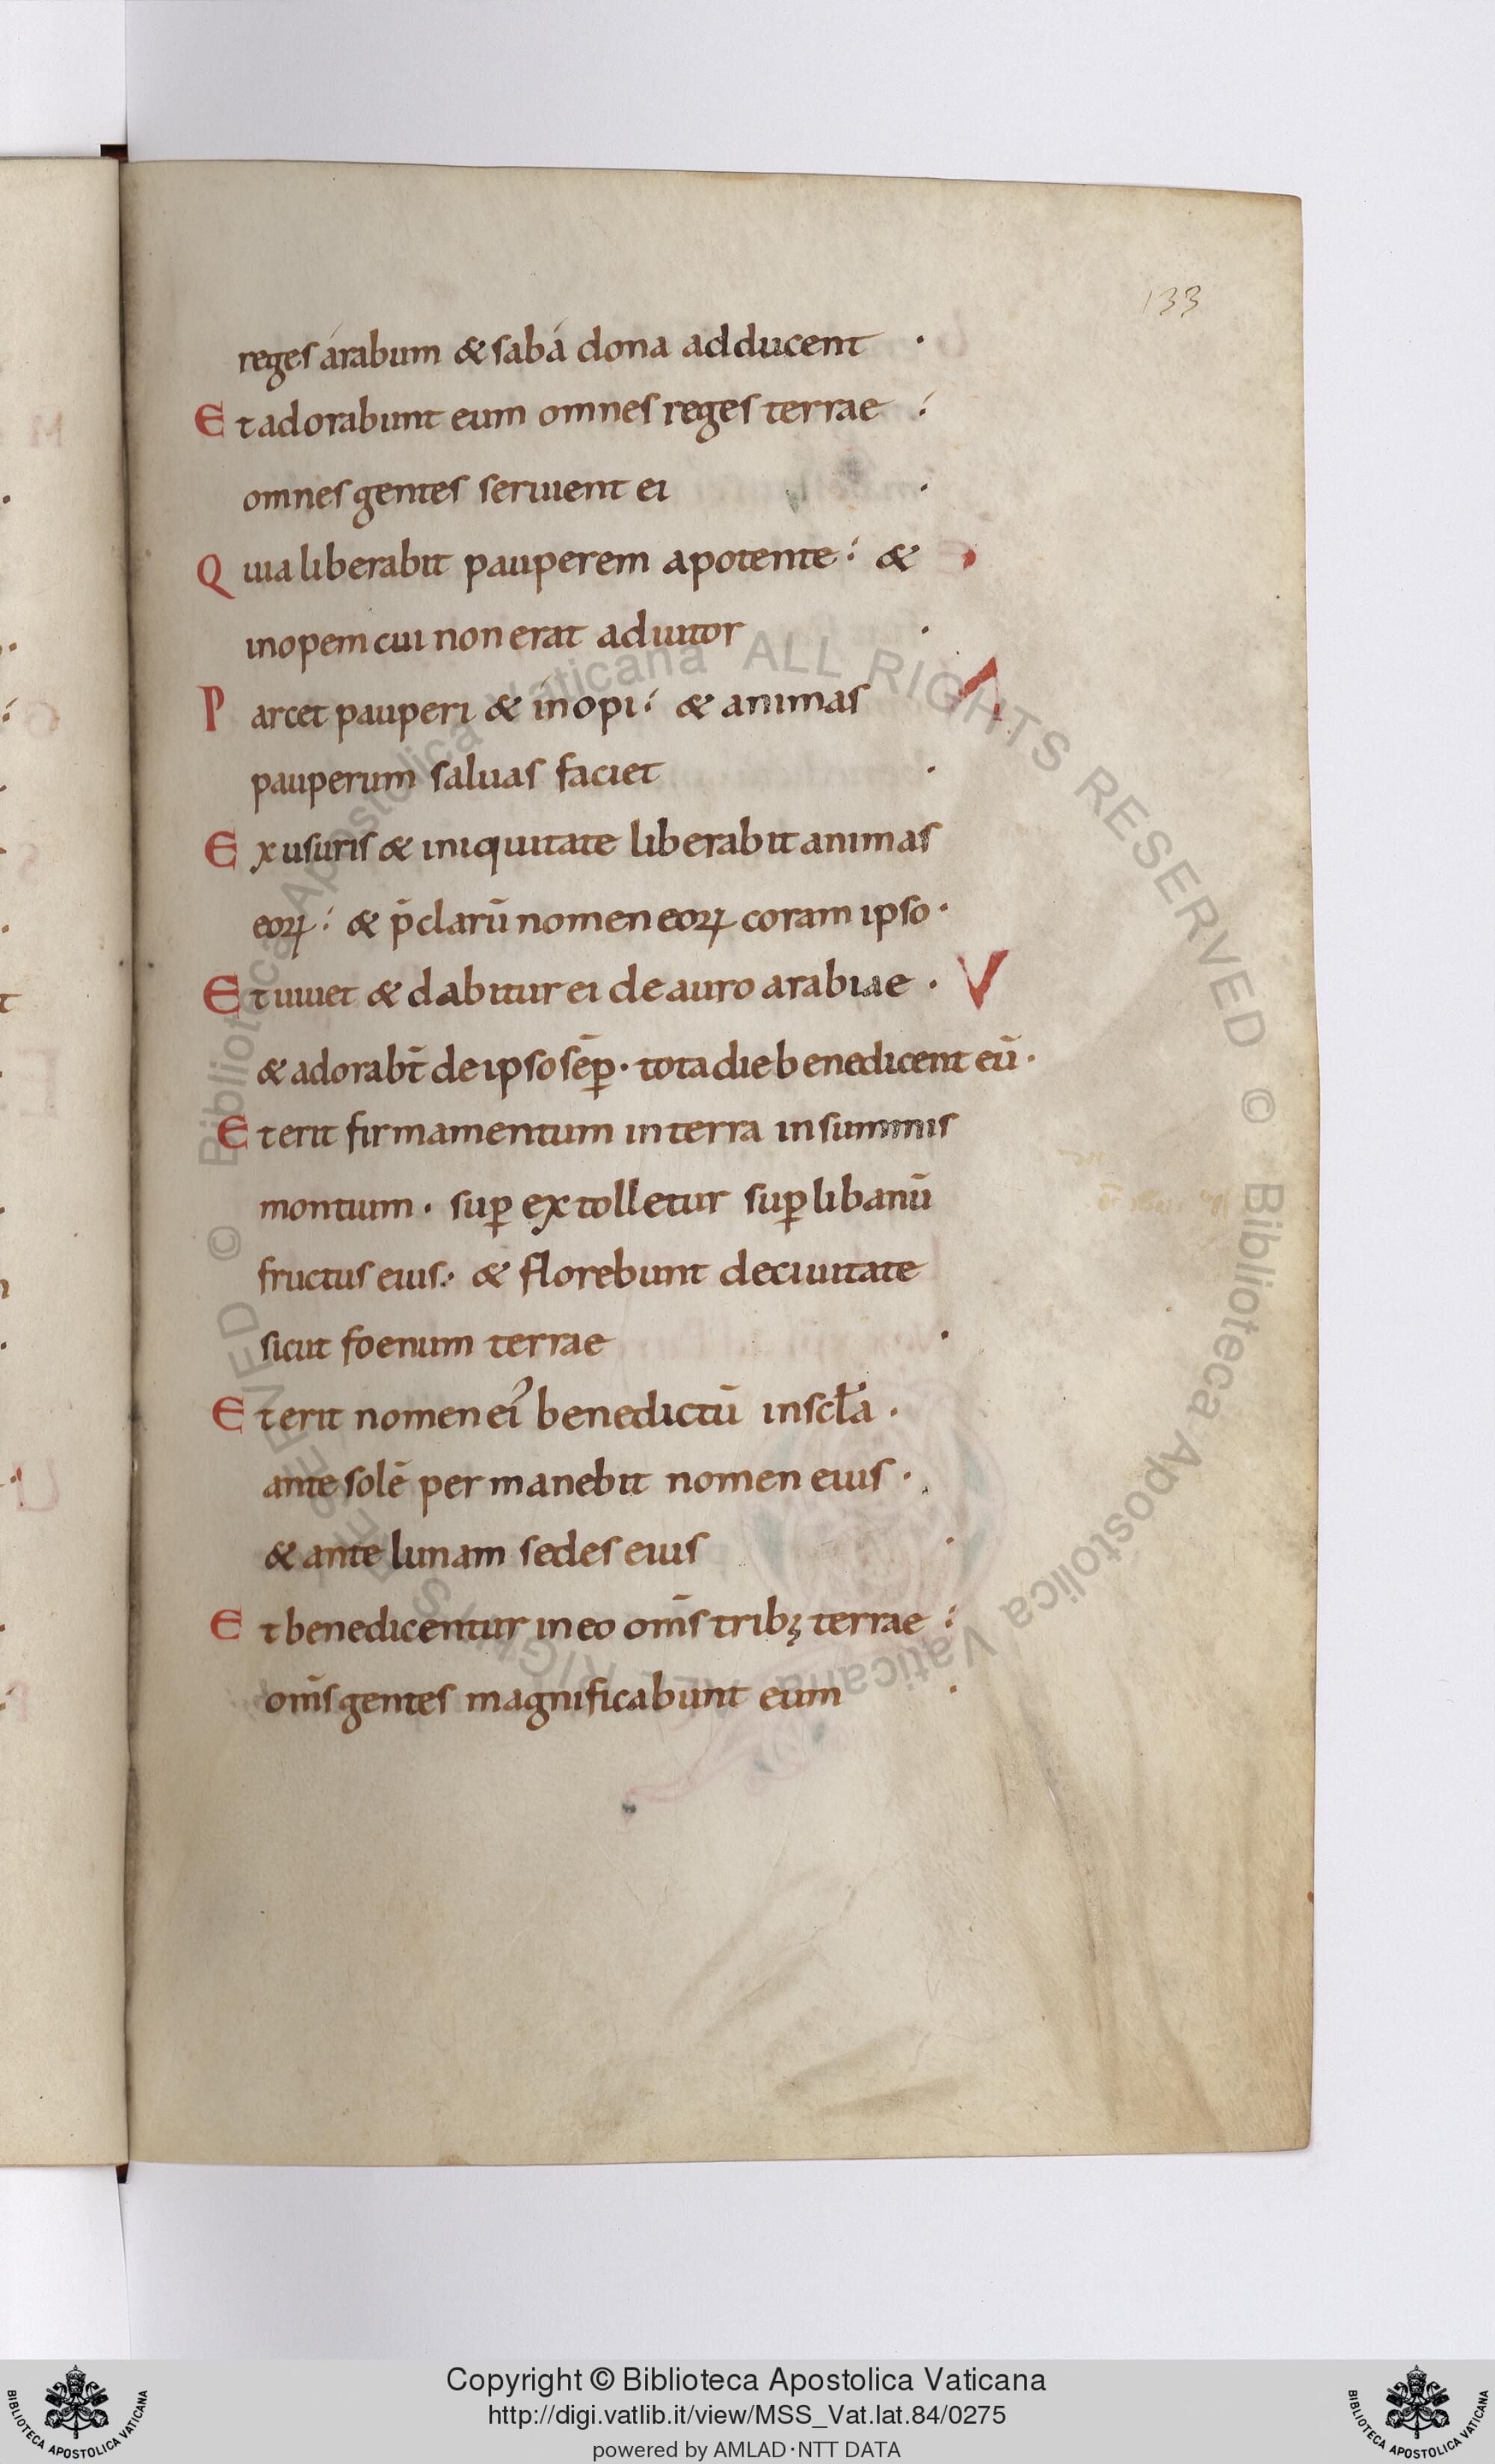 133
reges árabum & sabá dona adducent ·
Et adorabunt eum omnes reges terrae :
omnes gentes seruient ei ·
Quia liberabit pauperem apotente : &
inopem cui non erat adiutor ·
Parcet pauperi & ínopi : & animas
pauperum saluas faciet ·
Ex usuris & iniquitate liberabit animas
eoꝝ : & p̄clarū nomen eoꝝ coram ipso ·
Et uiuet & dabitur ei de auro arabiae · V
& adorabt̄ de ipso sēꝑ · tota die benedicent eū ·
Et erit firmamentum in terra in summis
montium · suꝑ extolletur suꝑ libanū
fructus eius : & florebunt deciuitate
sicut foenum terrae ·
Et erit nomen ei᾽ benedictū in scła ·
ante solē permanebit nomen eius ·
& ante lunam sedes eius ·
Et benedicentur in eo om̄s tribꝫ terrae :
om̄s gentes magnificabunt eum ·
© Biblioteca Apostolica Vaticana ALL RIGHTS RESERVED © Biblioteca Apostolica Vaticana ALL RIGHTS RESERVED
Copyright © Biblioteca Apostolica Vaticana
http://digi.vatlib.it/view/MSS_Vat.lat.84/0275
powered by AMLAD·NTT DATA
BIBLIOTECA APOSTOLICA VATICANA
BIBLIOTECA APOSTOLICA VATICANA